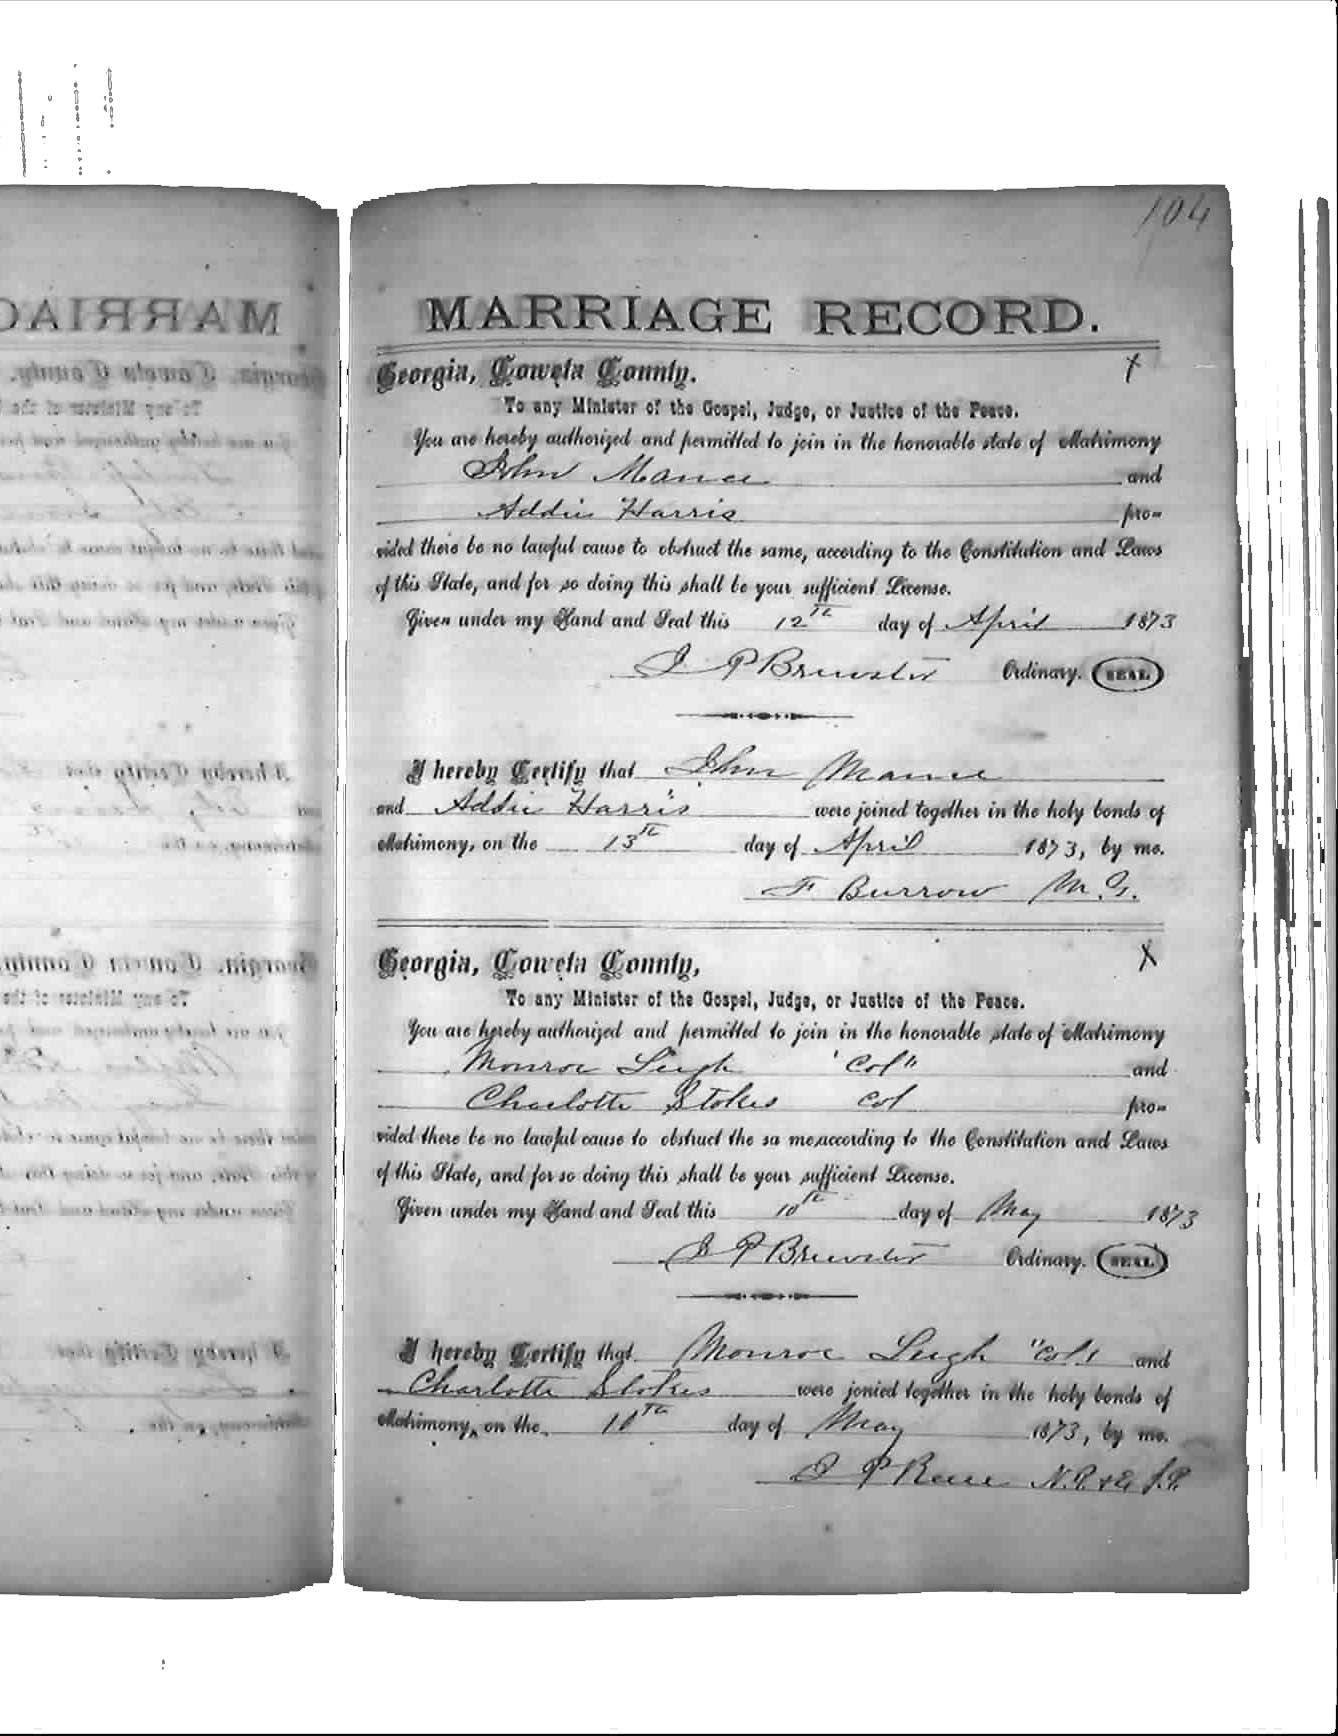 104
MARRIAGE RECORD.
Georgia, Coweta County. X
To any Minister of the Gospel, Judge, or Justice of the Peace.
You are hereby authorized and permitted to join in the honorable state of Matrimony
John Mance and
Addie Harris pro-
vided there be no lawful cause to obstruct the same, according to the Constitution and Laws
of this State, and for so doing this shall be your sufficient License.
Given under my Hand and Seal this 12th day of April 1873
J P Brewster Ordinary. SEAL
I hereby Certify that John Mance
and Addie Harris were joined together in the holy bonds of
Matrimony, on the 13th day of April 1873, by me.
F Burrow M.G.
Georgia, Coweta County, X
To any Minister of the Gospel, Judge, or Justice of the Peace.
You are hereby authorized and permitted to join in the honorable state of Matrimony
Monroe Leigh "Col" and
Charlotte Stokes Col pro-
vided there be no lawful cause to obstruct the sa me,according to the Constitution and Laws
of this State, and for so doing this shall be your sufficient License.
Given under my Hand and Seal this 10th day of May 1873
J P Brewster Ordinary. SEAL
I hereby Certify that Monroe Leigh "Col" and
Charlotte Stokes were jonied together in the holy bonds of
Matrimony, on the 10th day of May 1873, by me.
J P Reese N.P. & Ex J.P.